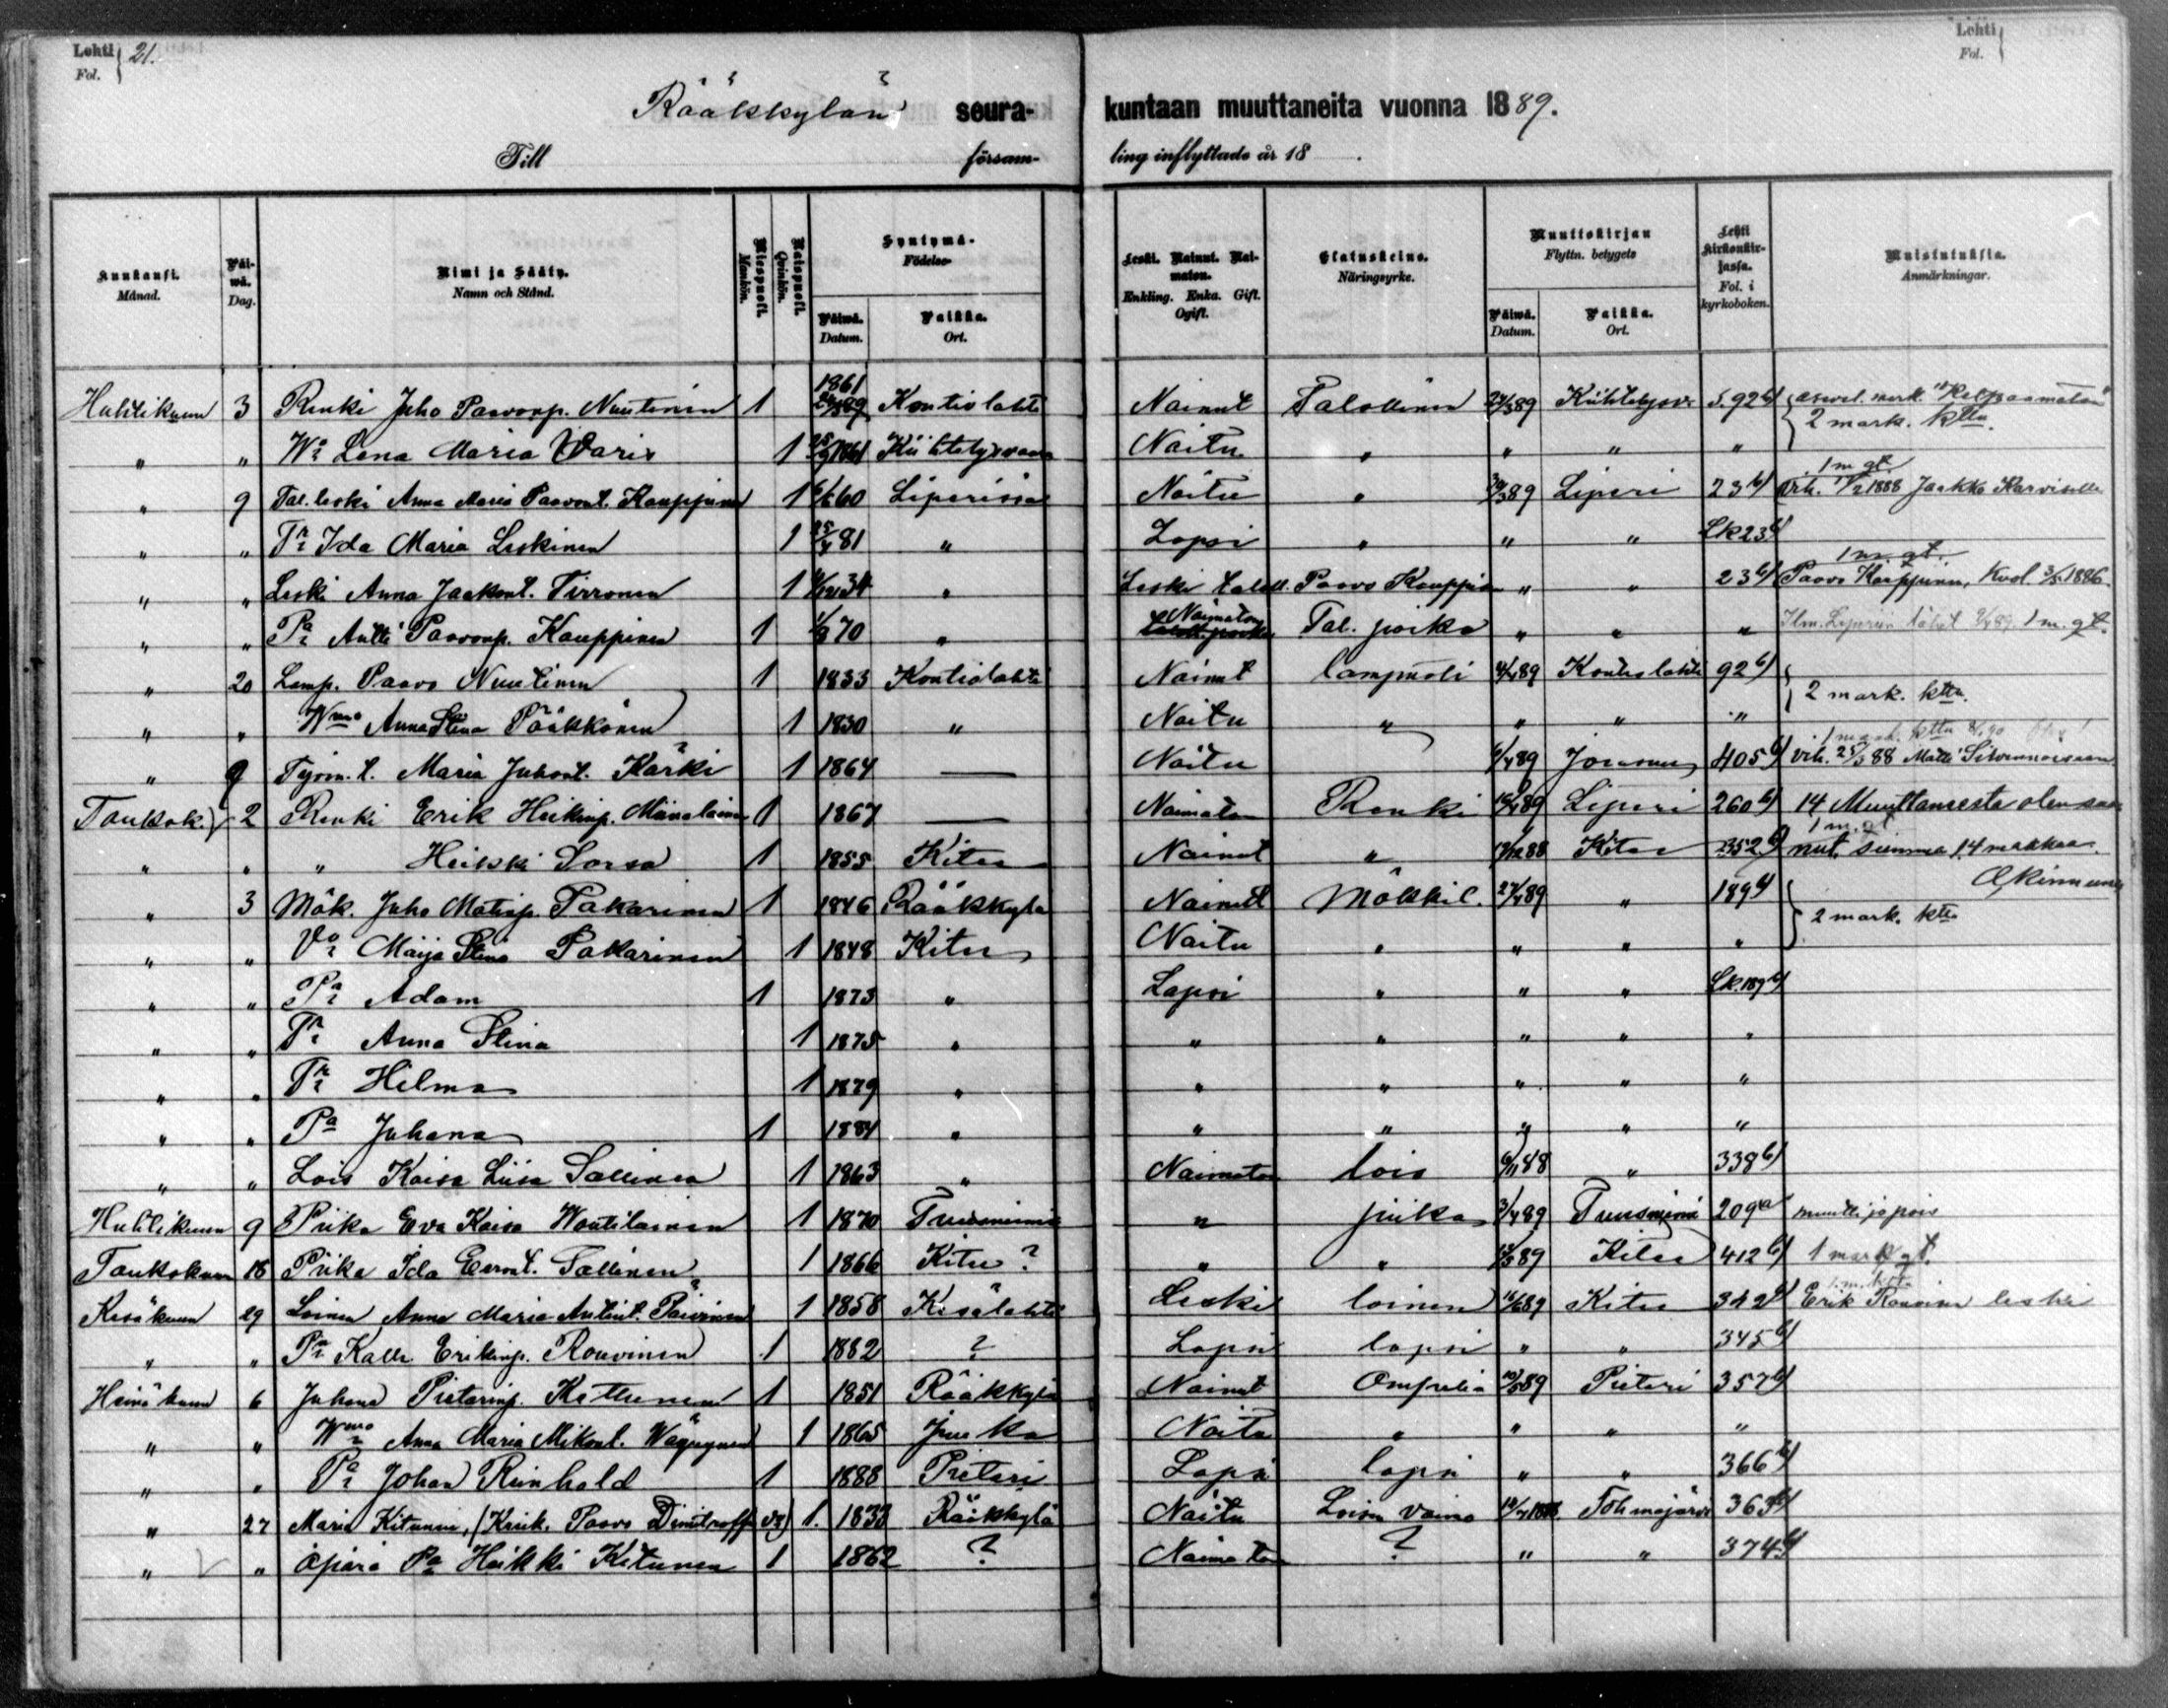 Lehti 21.
Fol.
Lehti
Fol.
Rääkkylän seura- kuntaan muuttaneita vuonna 1889.
Till försam- ling inflyttade år 18 .
Kuukausi. Månad. Päiwä. Dag. Nimi ja Sääty. Namn och Stånd. Miespuoli. Mankön. Waispuoli. Qvinkön. Syntymä- Födelse- Päiwä. Datum. Paikka. Ort. Leski. Nainut. Naimaton. Enkling. Enka. Gift. Ogift. Elatuskeino. Näringsyrke. Muuttokirjan Flyttn. betygets Päiwä. Datum. Paikka. Ort. Lehti kirkonkirjassa. Fol. i kyrkoboken. Muistutuksia. Anmärkningar.
Huhtikuun 3 Renki Juho Paavonp. Nuutinen 1 1861 Kontiolahti Nainut Talollinen 24/3 89 Kiihtelysv. S. 92 b) 2 mark. kttu.
" " Wo Lena Maria Varis 1 1861 Kiihtelysvaara Naitu " " " "
" 9 Tal. leski Anna Maria Paavont. Kauppinen 1 60 Liperissä Naitu " 30/3 89 Liperi 23 b) 1 m gt. Vih. 1888 Jaakko Karviselle
" " Tr Ida Maria Leskinen 1 25/4 81 " Lapsi " " " Lk 23
" " Leski Anna Jaakont. Tirronen 1 34 " Leski taloll. Paavo Kauppisen " " 23 b) 1 m gt. Paavo Kauppinen, Kuol. 3/5 1886
" " Pa Antti Paavonp. Kauppinen 1 1/9 70 " Naimaton Tal. poika " " " Ilm. Liperiin 1 m. gt.
" 20 Lamp. Paavo Nuutinen 1 1833 Kontiolahti Nainut lampuoti 4/4 89 Kontiolahti 92 b) 2 mark. ktta.
" " Wmo Anna Stina Pääkkönen 1 1830 " Naitu " " " "
" 9 Työm. t. Maria Juhont. Kärki 1 1864 — Naitu 6/4 89 Joensuu 405 b) vih. 25/3 88 Matti
Toukok. 2 Renki Erik Heikinp. 1 1867 — Naimaton Renki 89 Liperi 260 b) 14 Muuttaneesta olen saa
" " " Heikki Sorsa 1 1855 Kitee Nainut " 88 Kitee 352 1 m. gt nut summa 14 markkaa.
" 3 Mök. Juho Matinp. Pakarinen 1 1846 Rääkkylä Nainut Mökkil. 27/4 89 " 189 2 mark. ktta
" " Vo Maija Stina Pakarinen 1 1848 Kitee Naitu " " " "
" " Pa Adam 1 1873 " Lapsi " " " Lk. 189
" " Tr Anna Stina 1 1875 " " " " " "
" " Tr Hilma 1 1879 " " " " " "
" " Pa Juhana 1 1884 " " " " " "
" " Lois Kaisa Liisa Sallinen 1 1863 " Naimaton lois 6/11 88 " 338 b)
Huhtikuun 9 Piika Eva Kaisa Woutilainen 1 1870 Tuusniemi " piika 3/4 89 Tuusniemi 209 a muutti jo pois
Toukokuun 18 Piika Ida Eeront. Sallinen 1 1866 Kitee ? " " 89 Kitee 412 b) 1 mark gt.
Kesäkuun 29 Loinen Anna Maria Antint. Päivinen 1 1858 Kesälahti Leski loinen 89 Kitee 342 Erik Rouvinen leski
" " Pa Kalle Erikinp. Rouvinen 1 1882 ? Lapsi lapsi " " 345 b)
Heinäkuun 6 Juhana Pietarinp. Kettunen 1 1851 Rääkkylä Nainut Ompelia 89 Pietari 357 b)
" " Wmo Anna Maria Mikont. 1 1865 Juuka Naitu " " " "
" " Pa Johan Reinhold 1 1888 Pietari Lapsi lapsi " " 366
" 27 Maria Kitunen, (Kruk. Paavo Dimitroff vo) 1 1833 Rääkkylä Naitu Loisen vaimo Tohmajärvi 365
" " Äpärä Pa Heikki Kitunen 1 1862 ? Naimaton ? " " 374